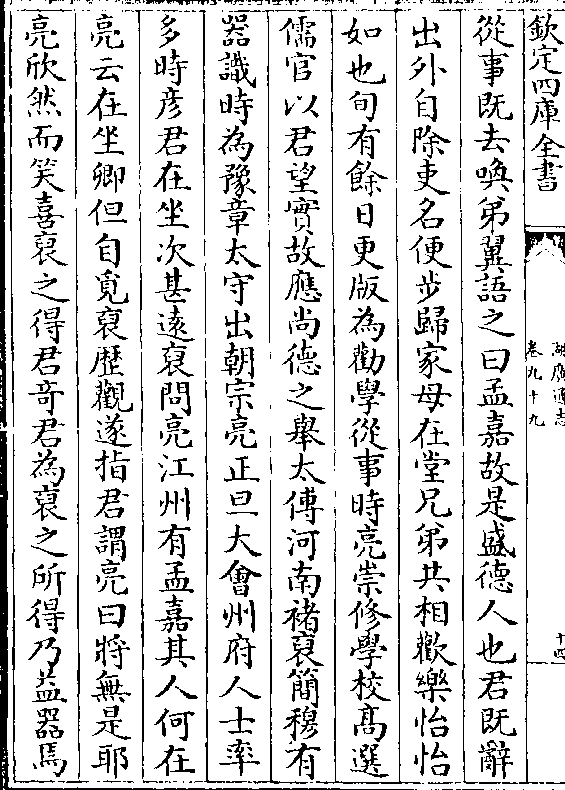 欽定四庫全書
湖廣通志
卷九十九
十四
從事既去喚弟翼語之曰孟嘉故是盛德人也君既辭
出外自除吏名便步歸家母在堂兄弟共相歡樂怡怡
如也旬有餘日更版為勸學從事時亮崇修學校髙選
儒官以君望實故應尚德之舉太傅河南褚裒簡穆有
器識時為豫章太守出朝宗亮正旦大會州府人士率
多時彦君在坐次甚逺裒問亮江州有孟嘉其人何在
亮云在坐卿但自覓裒歴觀遂指君謂亮曰將無是耶
亮欣然而笑喜裒之得君奇君為裒之所得乃益器焉